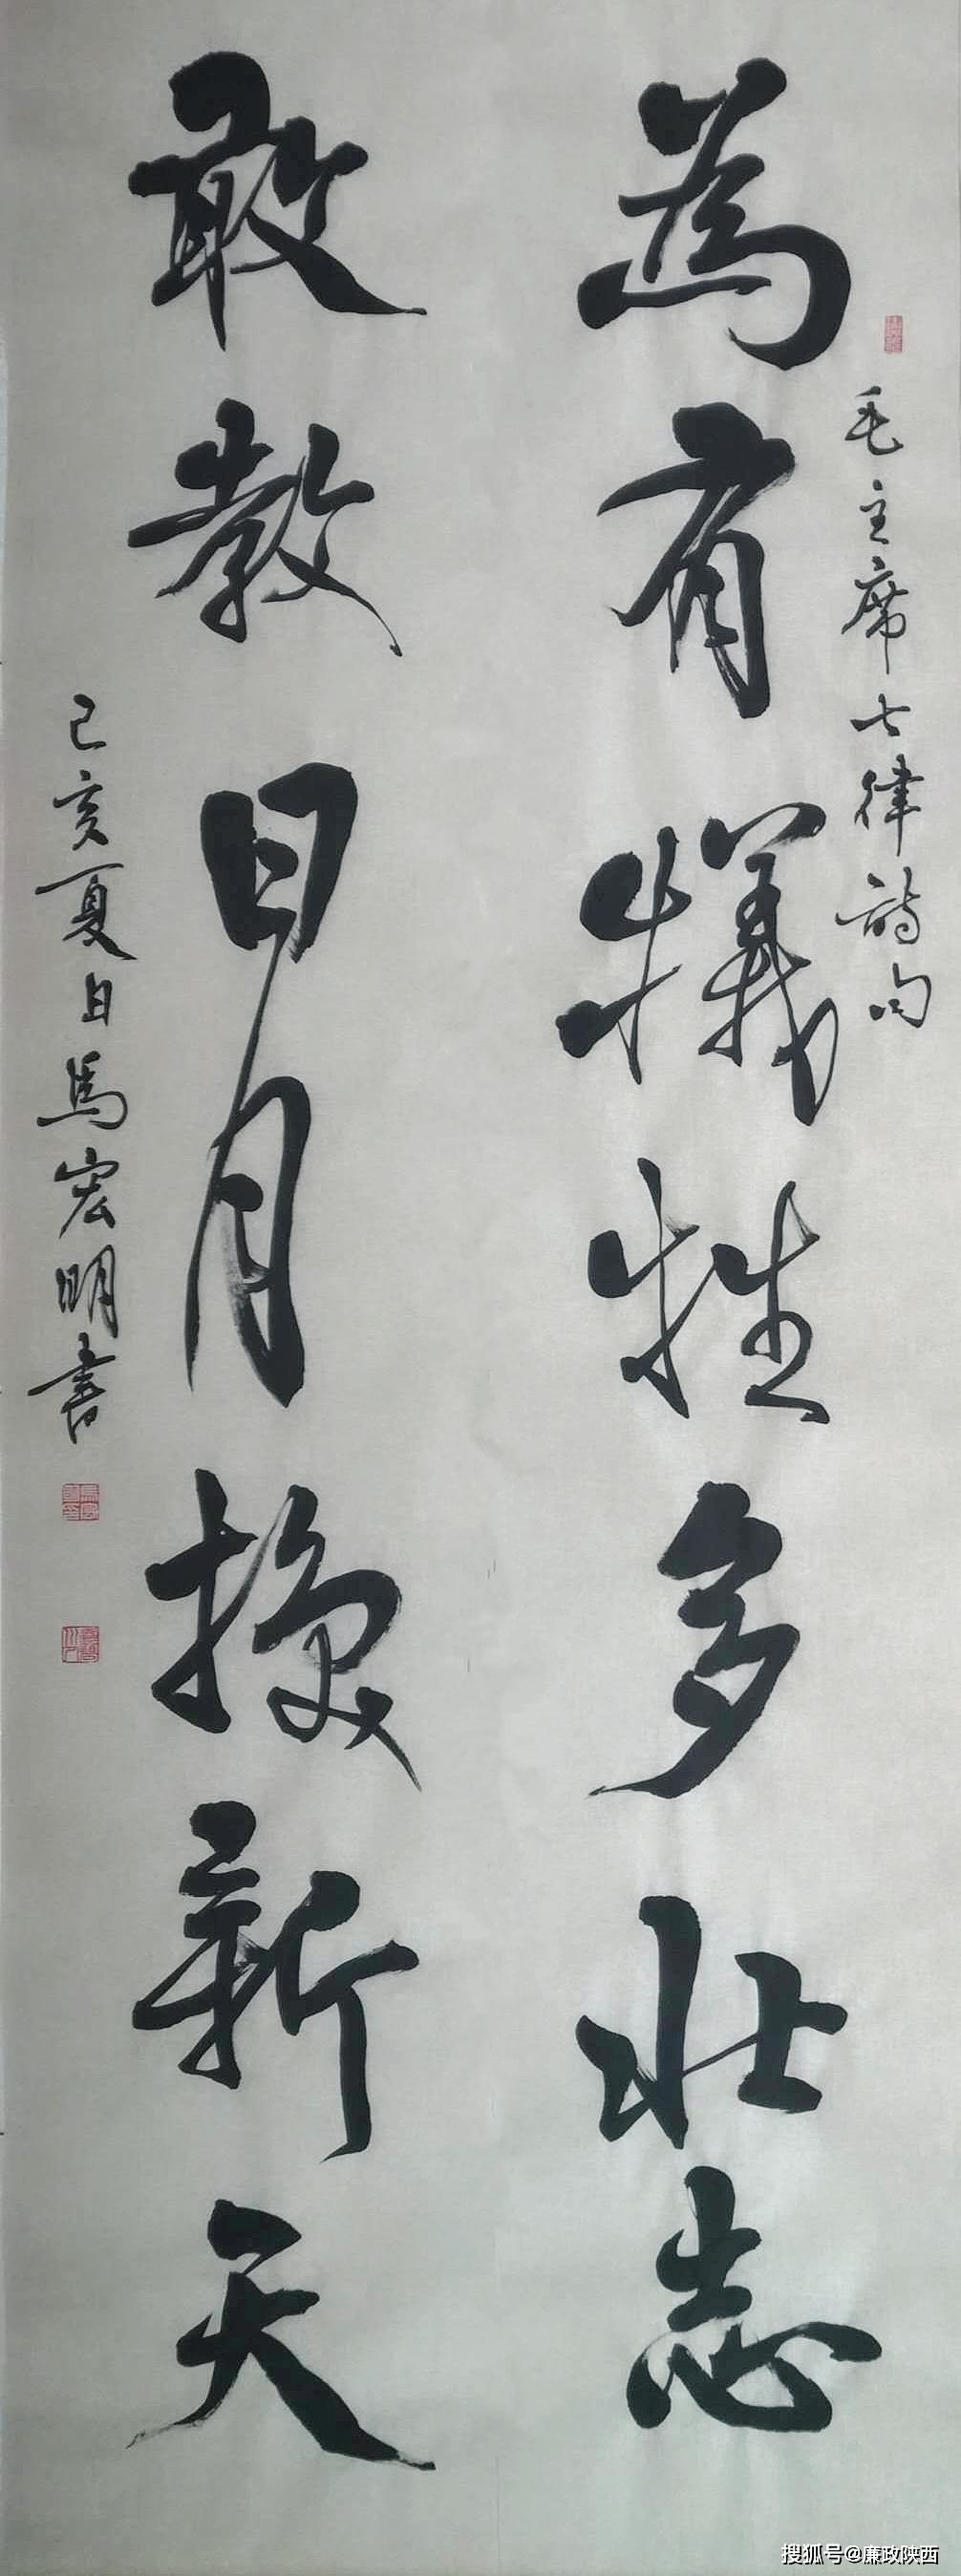 毛主席七律詩句
為有犧牲多壯志
敢教日月換新天
己亥夏日馬宏明書
搜狐号@廉政陕西